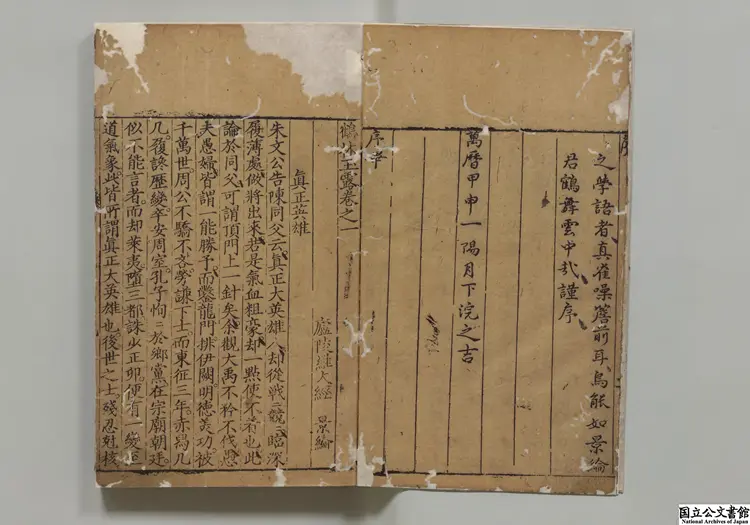 之學語者真雀噪簷前耳烏能如景綸
君鶴舞雲中哉謹序
萬曆甲申一陽月下浣之吉
序畢
鶴林玉露卷之一
廬陵羅大經 景綸
真正英雄
朱文公告陳同父云真正大英雄人却從戰戰兢兢臨深
履薄處做將出來若是氣血粗豪却一點使不着也此
論於同父可謂頂門上一針矣余觀大禹不矜不伐愚
夫愚婦皆謂一能勝予而鑿龍門排伊闕明德美功被
千萬世周公不驕不吝勞謙下士而東征三年赤舄几
几履誅歷變卒安周室孔子恂恂於鄉黨在宗廟朝廷
似不能言者而却萊夷墮三都誅少正卯便有一變至
道氣象此皆所謂真正大英雄也後世之士殘忍尅核
国立公文書館
National Archives of Japan